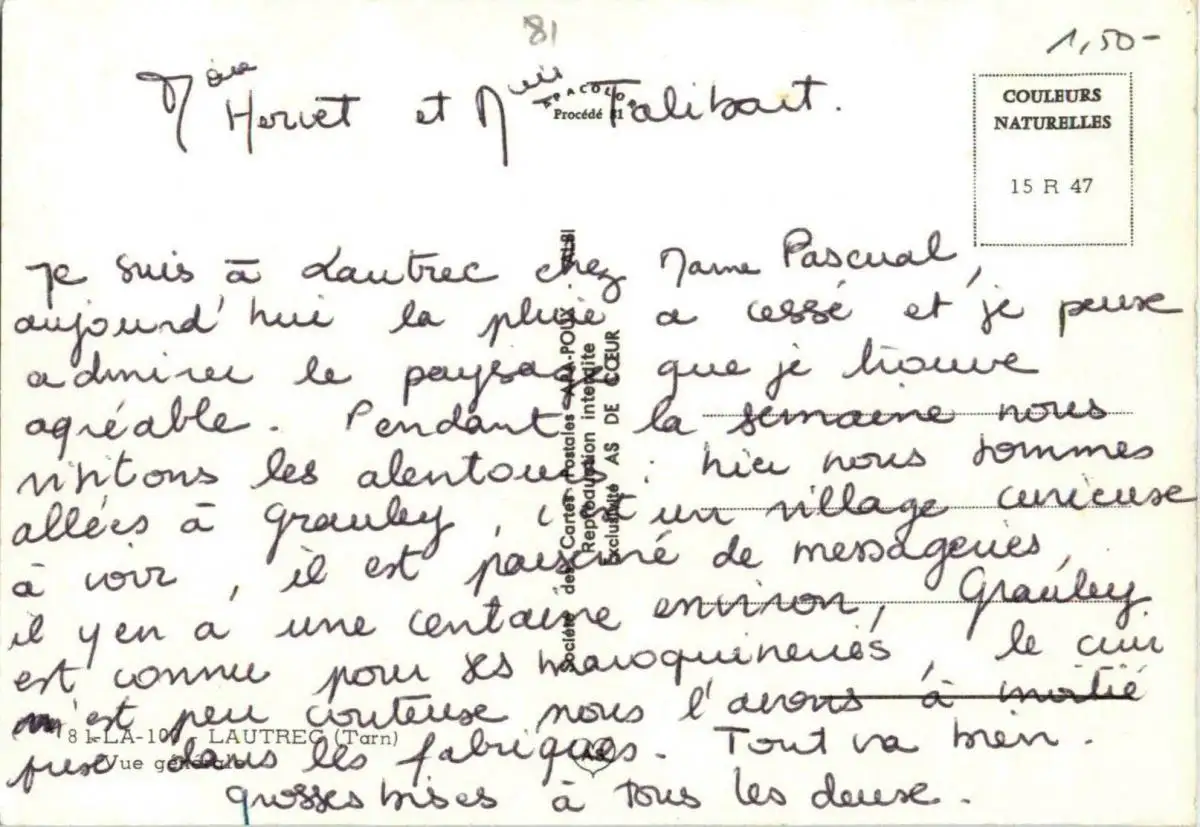 81
1,50-
Mère Hervet et Melle Talibart.
APACOLOR
Procédé 81
COULEURS
NATURELLES
15 R 47
Je suis à Lautrec chez Mame Pascual,
aujourd'hui la pluie a cessé et je peuxe
admirer le paysage que je trouve
agréable. Pendant la semaine nous
visitons les alentours. hier nous sommes
allées à Grauley, c'est un village curieuse
à voir, il est de messageries,
il y en a une centaine environ, Grauley
est connu pour ses maroquineries, le cuir
n'est peu couteuse nous l'avons à moitié
prise dans les fabriques. Tout va bien.
grosses bises à tous les deuxe.
Société des Cartes Postales APA-POUX - ALBI
Reproduction interdite
Exclusivité AS DE CŒUR
81-LA-100 - LAUTREC (Tarn)
Vue générale